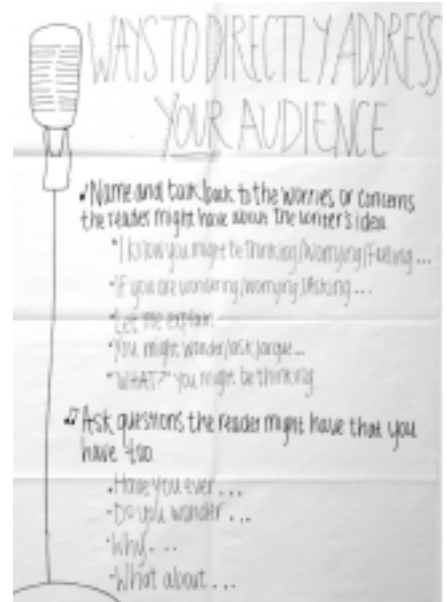 WAYS TO DIRECTLY ADDRESS
YOUR AUDIENCE
Name and talk back to the worries or concerns
the reader might have about the writer's idea.
"I know you might be thinking/worrying/feeling...
If you are wondering/worrying/asking...
Let me explain
You might wonder/ask/argue...
"WHAT?" you might be thinking
Ask questions the reader might have that you
have too.
Have you ever...
Do you wonder...
Why...
What about...